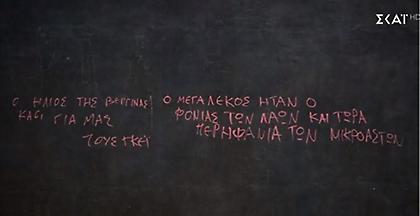 ΣΚΑΪ HD
Ο ΗΛΙΟΣ ΤΗΣ ΒΕΡΓΙΝΑΣ
ΚΑΘΙ ΓΙΑ ΜΑΣ
ΤΟΥΣ ΓΚΕΪ
Ο ΜΕΓΑΛΕΚΟΣ ΗΤΑΝ Ο
ΦΟΝΙΑΣ ΤΩΝ ΛΑΩΝ ΚΑΙ ΤΩΡΑ
ΠΕΡΗΦΑΝΙΑ ΤΩΝ ΜΙΚΡΟΑΣΤΩΝ